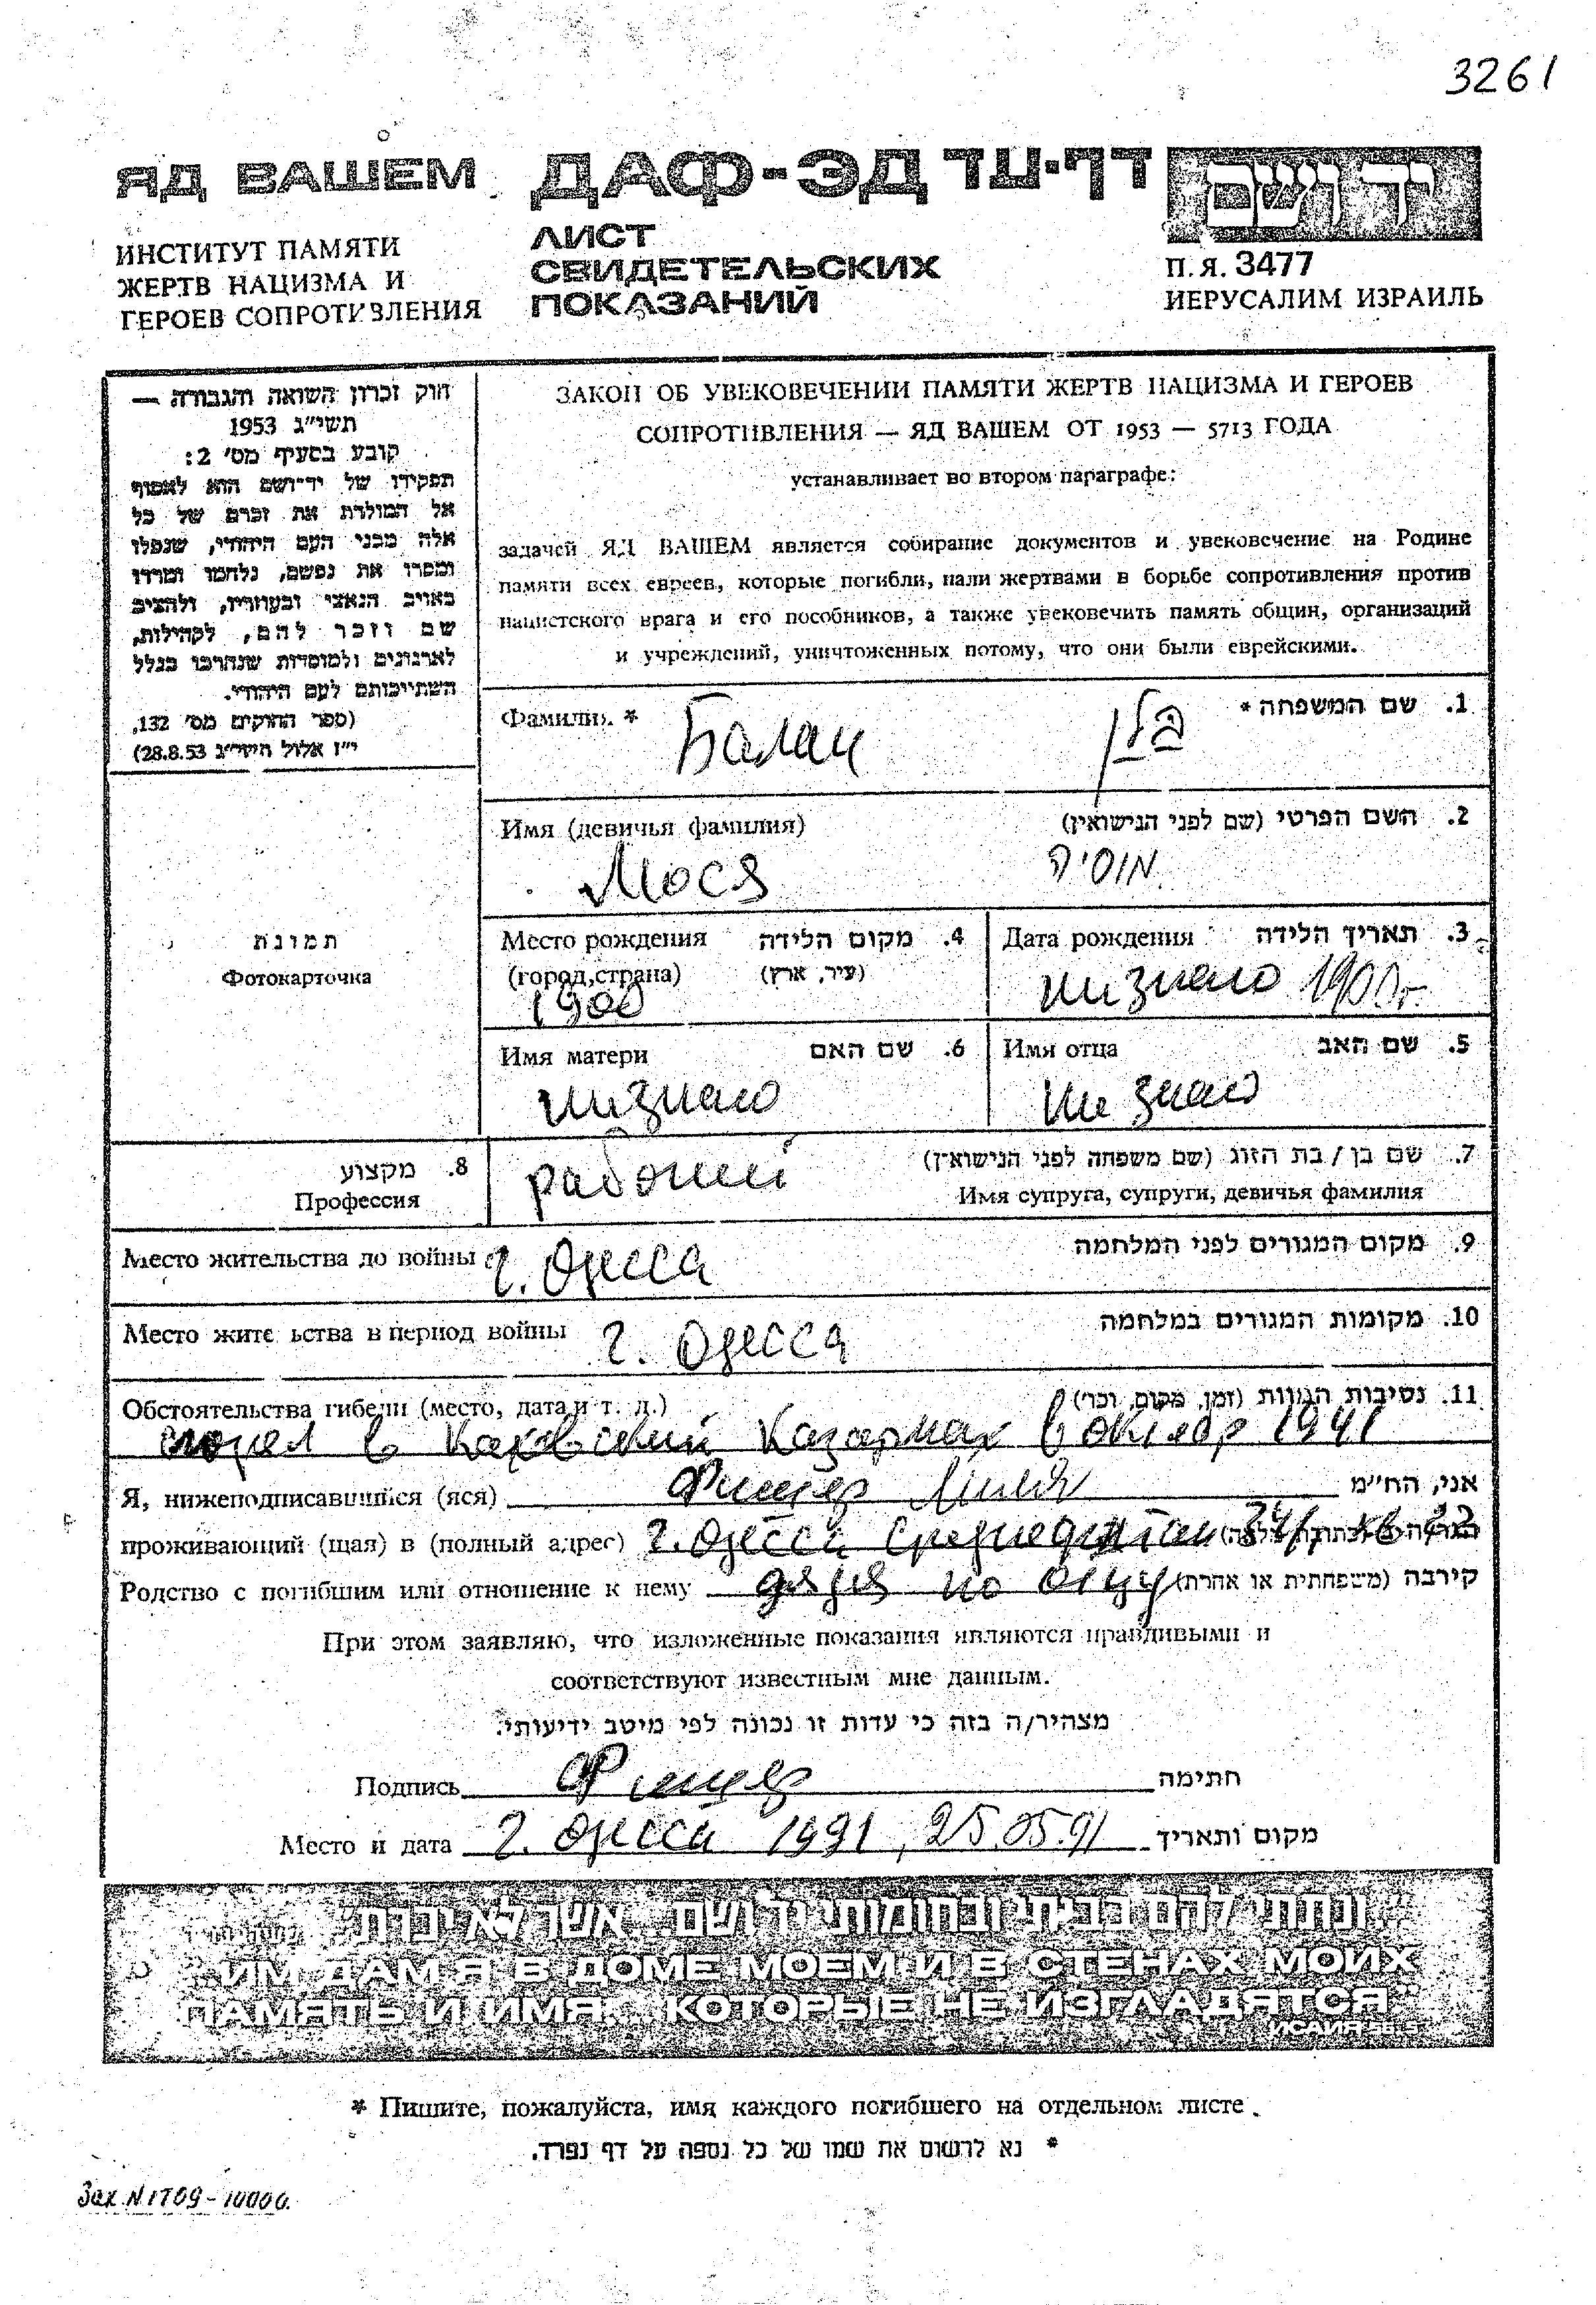 3261
ЯД ВАШЕМ ДАФ-ЭД דף-עד יד ושם
ИНСТИТУТ ПАМЯТИ
ЖЕРТВ НАЦИЗМА И
ГЕРОЕВ СОПРОТИВЛЕНИЯ
ЛИСТ
СВИДЕТЕЛЬСКИХ
ПОКАЗАНИЙ
П.Я. 3477
ИЕРУСАЛИМ ИЗРАИЛЬ
חוק זכרון השואה והגבורה —
תשי״ג 1953
קובע בסעיף מס׳ 2:
תפקידו של יד־ושם הוא לאסוף
אל המולדת את זכרם של כל
אלה מבני העם היהודי, שנפלו
ומסרו את נפשם, נלחמו ומרדו
באויב הנאצי ובעוזריו, ולהציב
שם וזכר להם, לקהילות,
לארגונים ולמוסדות שנחרבו בגלל
השתייכותם לעם היהודי.
(ספר החוקים מס׳ 132,
י״ז אלול תשי״ג 28.8.53)
ЗАКОН ОБ УВЕКОВЕЧЕНИИ ПАМЯТИ ЖЕРТВ НАЦИЗМА И ГЕРОЕВ
СОПРОТИВЛЕНИЯ — ЯД ВАШЕМ ОТ 1953 — 5713 ГОДА
устанавливает во втором параграфе:
задачей ЯД ВАШЕМ является собирание документов и увековечение на Родине
памяти всех евреев, которые погибли, пали жертвами в борьбе сопротивления против
нацистского врага и его пособников, а также увековечить память общин, организаций
и учреждений, уничтоженных потому, что они были еврейскими.
Фамилия * Балан בלן 1. שם המשפחה *
Имя (девичья фамилия) 2. השם הפרטי (שם לפני הנישואין)
Мося מוסיה
Место рождения 4. מקום הלידה
(город,страна) (עיר, ארץ)
1900
Дата рождения 3. תאריך הלידה
1900г
תמונת
Фотокарточка
Имя матери 6. שם האם
Имя отца 5. שם האב
не знаю
8. מקצוע
Профессия
7. שם בן / בת הזוג (שם משפחה לפני הנישואין)
Имя супруга, супруги, девичья фамилия
Место жительства до войны г. Одесса 9. מקום המגורים לפני המלחמה
Место жительства в период войны г. Одесса 10. מקומות המגורים במלחמה
Обстоятельства гибели (место, дата и т. д.) 11. נסיבות המוות (זמן, מקום, וכו׳)
в Казармах в 1941
Я, нижеподписавшийся (яся) Фишер אני, החי״מ
проживающий (щая) в (полный адрес) г. Одесса
Родство с погибшим или отношение к нему дядя по отцу קירבה (משפחתית או אחרת)
При этом заявляю, что изложенные показания являются правдивыми и
соответствуют известным мне данным.
מצהיר/ה בזה כי עדות זו נכונה לפי מיטב ידיעותי.
Подпись Фишер חתימה
Место и дата г. Одесса 1991, 25.05.91 מקום ותאריך
״ונתתי להם בביתי ובחומותי יד ושם... אשר לא יכרת״
„ИМ ДАМ Я В ДОМЕ МОЕМ И В СТЕНАХ МОИХ
ПАМЯТЬ И ИМЯ... КОТОРЫЕ НЕ ИЗГЛАДЯТСЯ"
* Пишите, пожалуйста, имя каждого погибшего на отдельном листе.
* נא לרשום את שמו של כל נספה על דף נפרד.
Зак. N 1709-10000.